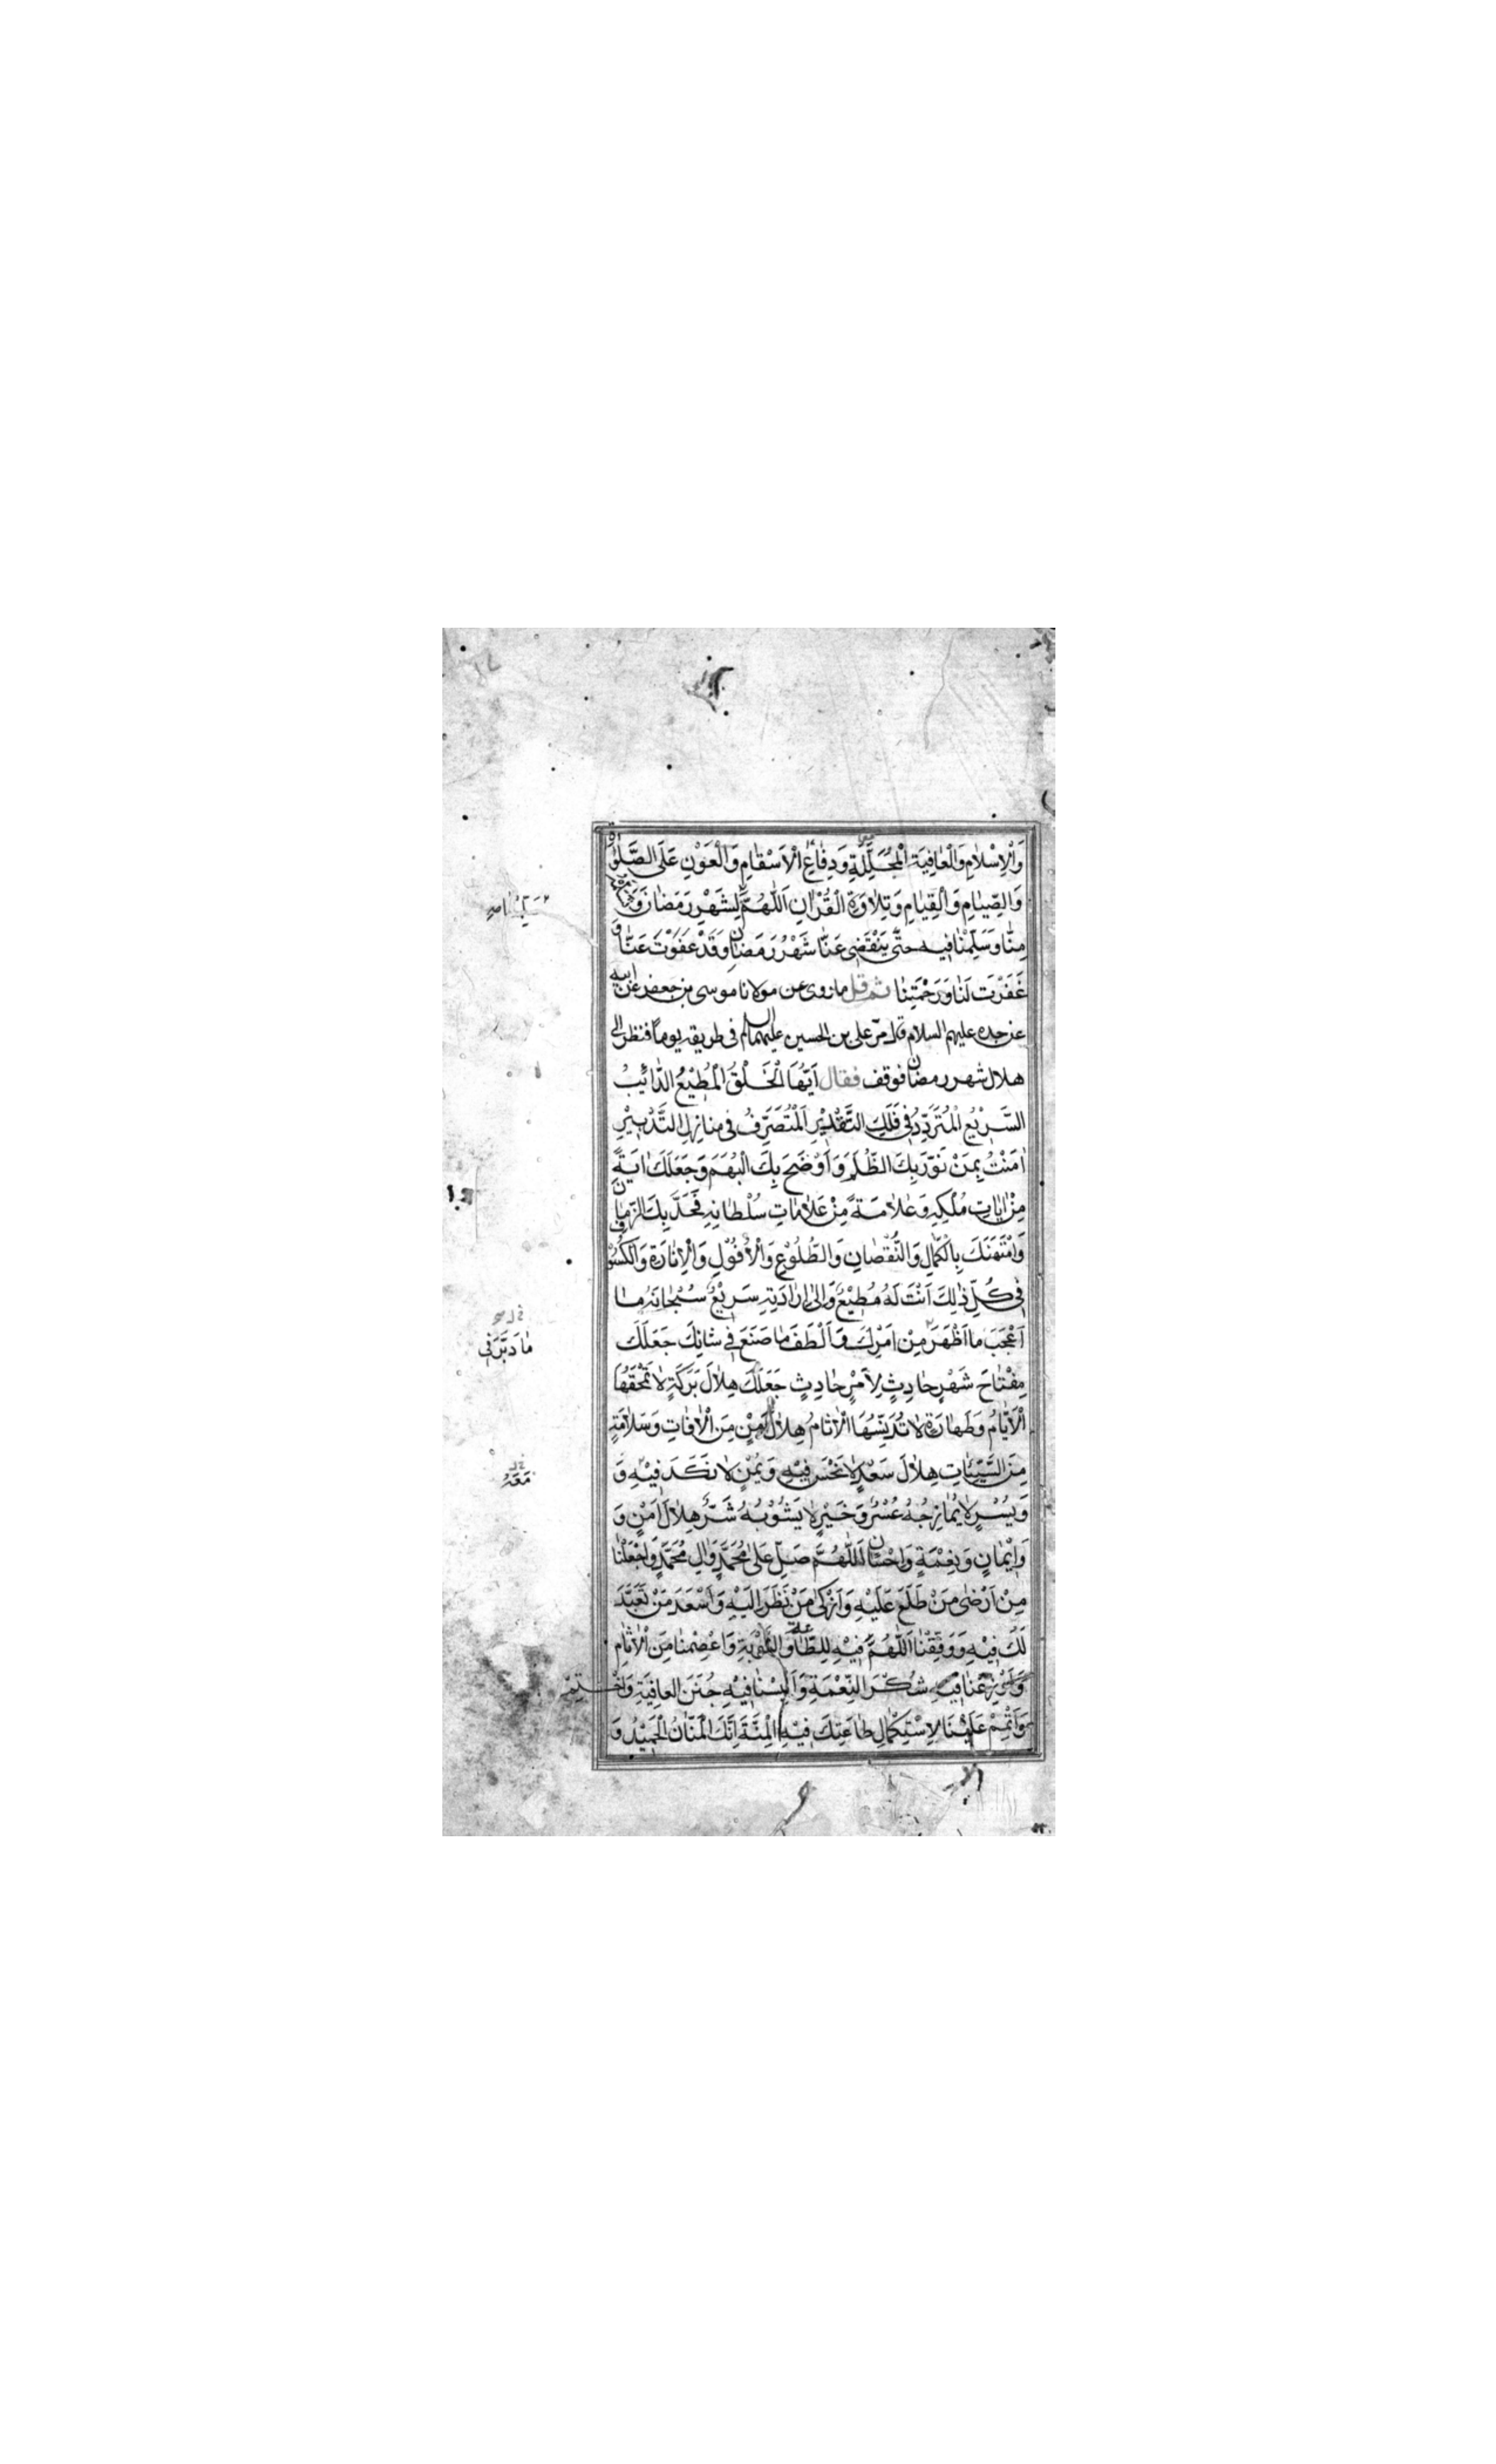 وَالْاِسْلامِ وَالْعافِيَةِ الْمُجَلَّلَةِ وَدِفاعِ الْاَسْقامِ وَالْعَوْنِ عَلَى الصَّلوةِ
وَالصِّيامِ وَالْقِيامِ وَتِلاوَةِ الْقُرْانِ اَللّٰهُمَّ لِشَهْرِ رَمَضانَ وَ
مِنّا وَسَلِّمْنا فيهِ حَتّى يَنْقَضِىَ عَنّا شَهْرُ رَمَضانَ وَقَدْ عَفَوْتَ عَنّا وَ
غَفَرْتَ لَنا وَرَحِمْتَنا ثم قل ما روى عن مولانا موسى بن جعفر عن ابيه
عن جده عليهم السلام قال مر على بن الحسين عليهما السلم فى طريقه يوماً فنظر الى
هلال شهر رمضان فوقف فقال اَيُّهَا الْخَلْقُ الْمُطيعُ الدّائِبُ
السَّريعُ الْمُتَرَدِّدُ فى فَلَكِ التَّقْديرِ اَلْمُتَصَرِّفُ فى مَنازِلِ التَّدْبيرِ
اٰمَنْتُ بِمَنْ نَوَّرَ بِكَ الظُّلَمَ وَاَوْضَحَ بِكَ الْبُهَمَ وَجَعَلَكَ ايَةً
مِنْ اياتِ مُلْكِهِ وَعَلامَةً مِنْ عَلاماتِ سُلْطانِهِ فَحَدَّ بِكَ الزَّمانَ
وَامْتَهَنَكَ بِالْكَمالِ وَالنُّقْصانِ وَالطُّلُوعِ وَالْاُفُولِ وَالْاِنارَةِ وَالْكُسُوفِ
فى كُلِّ ذٰلِكَ اَنْتَ لَهُ مُطيعٌ وَاِلى اِرادَتِهِ سَريعٌ سُبْحانَهُ ما
اَعْجَبَ ما اَظْهَرَ مِنْ اَمْرِكَ وَاَلْطَفَ ما صَنَعَ فى شانِكَ جَعَلَكَ
مِفْتاحَ شَهْرٍ حادِثٍ لِاَمْرٍ حادِثٍ جَعَلَكَ هِلالَ بَرَكَةٍ لا تَمْحَقُهَا
الْاَيّامُ وَطَهارَةٍ لا تُدَنِّسُهَا الْاثامُ هِلالَ اَمْنٍ مِنَ الْافاتِ وَسَلامَةٍ
مِنَ السَّيِّئاتِ هِلالَ سَعْدٍ لا نَحْسَ فيهِ وَيُمْنٍ لا نَكَدَ فيهِ وَ
وَيُسْرٍ لا يُمازِجُهُ عُسْرٌ وَخَيْرٍ لا يَشُوبُهُ شَرٌّ هِلالَ اَمْنٍ وَ
وَايْمانٍ وَنِعْمَةٍ وَاِحْسانٍ اَللّٰهُمَّ صَلِّ عَلى مُحَمَّدٍ وَالِ مُحَمَّدٍ وَاجْعَلْنا
مِنْ اَرْضى مَنْ طَلَعَ عَلَيْهِ وَاَزْكى مَنْ نَظَرَ اِلَيْهِ وَاَسْعَدَ مَنْ تَعَبَّدَ
لَكَ فيهِ وَوَفِّقْنا اَللّٰهُمَّ فيهِ لِلطّاعَةِ وَالتَّوْبَةِ وَاعْصِمْنا مِنَ الْاثامِ
وَاَوْزِعْنا فيهِ شُكْرَ النِّعْمَةِ وَاَلْبِسْنا فيهِ جُنَنَ الْعافِيَةِ
وَاَتْمِمْ عَلَيْنا لِاسْتِكْمالِ طاعَتِكَ فيهِ الْمِنَّةَ اِنَّكَ الْمَنّانُ الْحَميدُ وَ
ما دَبَّرَ فى
مَعَهُ